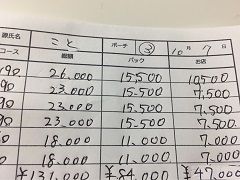 源氏名 こと ポーチ ③ 10月7日
コース 総額 バック お店
90 26,000 15,500 10,500
90 23,000 15,500 7,500
90 23,000 15,500 7,500
90 23,000 15,500 7,500
18,000 11,000 7,000
18,000 11,000 7,000
¥131,000 ¥84,000 ¥47,000